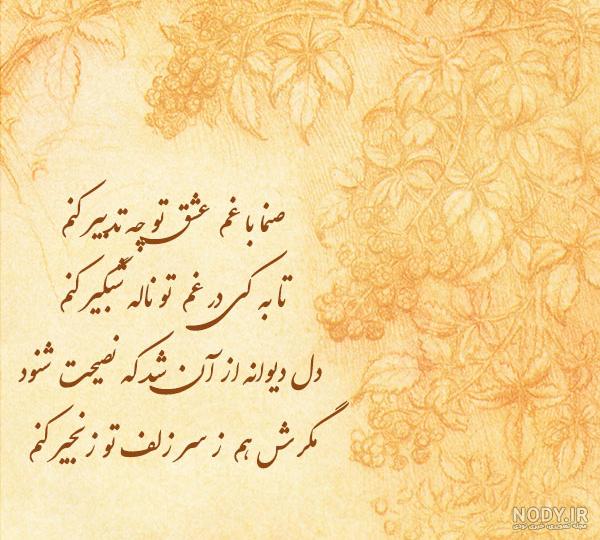 صنما با غم عشق تو چه تدبیر کنم
تا به کی در غم تو ناله شبگیر کنم
دل دیوانه از آن شد که نصیحت شنود
مگرش هم ز سر زلف تو زنجیر کنم
NODY.IR
مجله تصویری خبری نودی